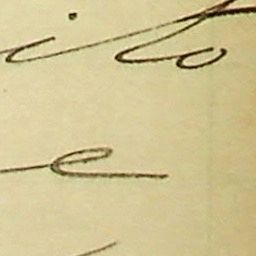 ito
e